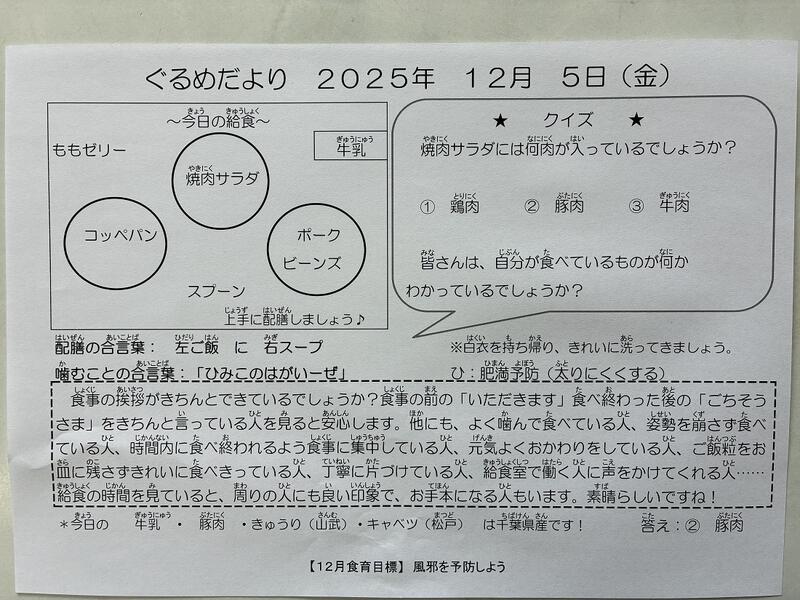 ぐるめだより　２０２５年　１２月　５日（金）
～今日の給食～
ももゼリー
牛乳
焼肉サラダ
コッペパン
ポーク
ビーンズ
スプーン
上手に配膳しましょう♪
★　クイズ　★
焼肉サラダには何肉が入っているでしょうか？
①　鶏肉　②　豚肉　③　牛肉
皆さんは、自分が食べているものが何か
わかっているでしょうか？
配膳の合言葉：　左ご飯　に　右スープ
※白衣を持ち帰り、きれいに洗ってきましょう。
噛むことの合言葉：「ひみこのはがいーぜ」
ひ：肥満予防（太りにくくする）
食事の挨拶がきちんとできているでしょうか？食事の前の「いただきます」食べ終わった後の「ごちそう
さま」をきちんと言っている人を見ると安心します。他にも、よく噛んで食べている人、姿勢を崩さず食べ
ている人、時間内に食べ終われるよう食事に集中している人、元気よくおかわりをしている人、ご飯粒をお
皿に残さずきれいに食べきっている人、丁寧に片づけている人、給食室で働く人に声をかけてくれる人……
給食の時間を見ていると、周りの人にも良い印象で、お手本になる人もいます。素晴らしいですね！
＊今日の　牛乳　・　豚肉　・きゅうり（山武）・キャベツ（松戸）　は千葉県産です！
答え：②　豚肉
【１２月食育目標】風邪を予防しよう